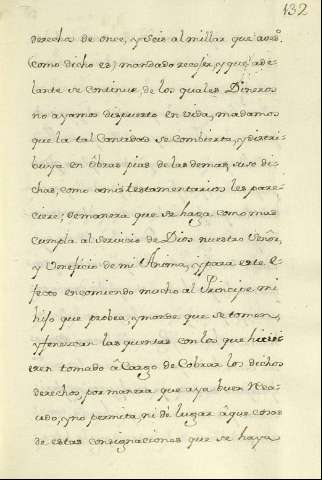 132
derecho de once, y seis al millar que
(como dicho es) mandado recojer, y que ade-
lante se continue, de los quales Dineros
no ayamos dispuesto en vida, madamos
que la tal Cantidad se combierta, y distri-
buya en Obras pias de las demas, suso di-
chas, como a mis testamentarios les pare-
ciere; de manera que se haga como mas
cumpla al Servicio de Dios nuestro Señor,
y Veneficio de mi Anima, y para este e-
fecto encomiendo mucho al Principe mi
hijo que probea, y mande que se tomen,
y fenezcan las quentas con los que hubie-
ren tomado â Cargo de Cobrar los dichos
derechos, por manera que aya buen Reca-
udo, y no permita, ni dé lugar â que cosas
de estas consignaciones que se haya